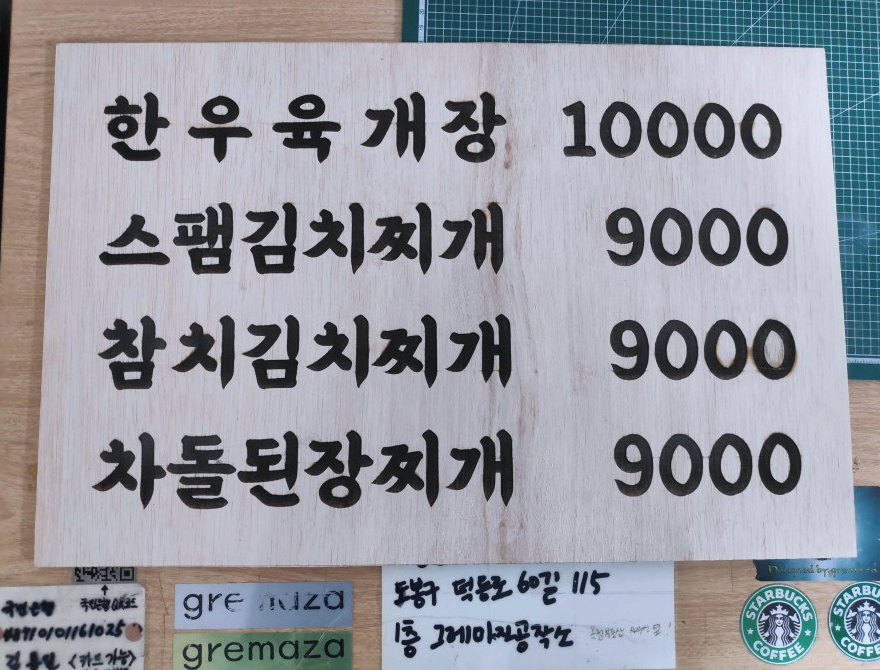 한우육개장 10000
스팸김치찌개 9000
참치김치찌개 9000
차돌된장찌개 9000
국민은행
<카드가능>
gremaza
gremaza
도봉구 덕릉로60길 115
1층 그레마자공작소
STARBUCKS
COFFEE
STARBUCKS
COFFEE